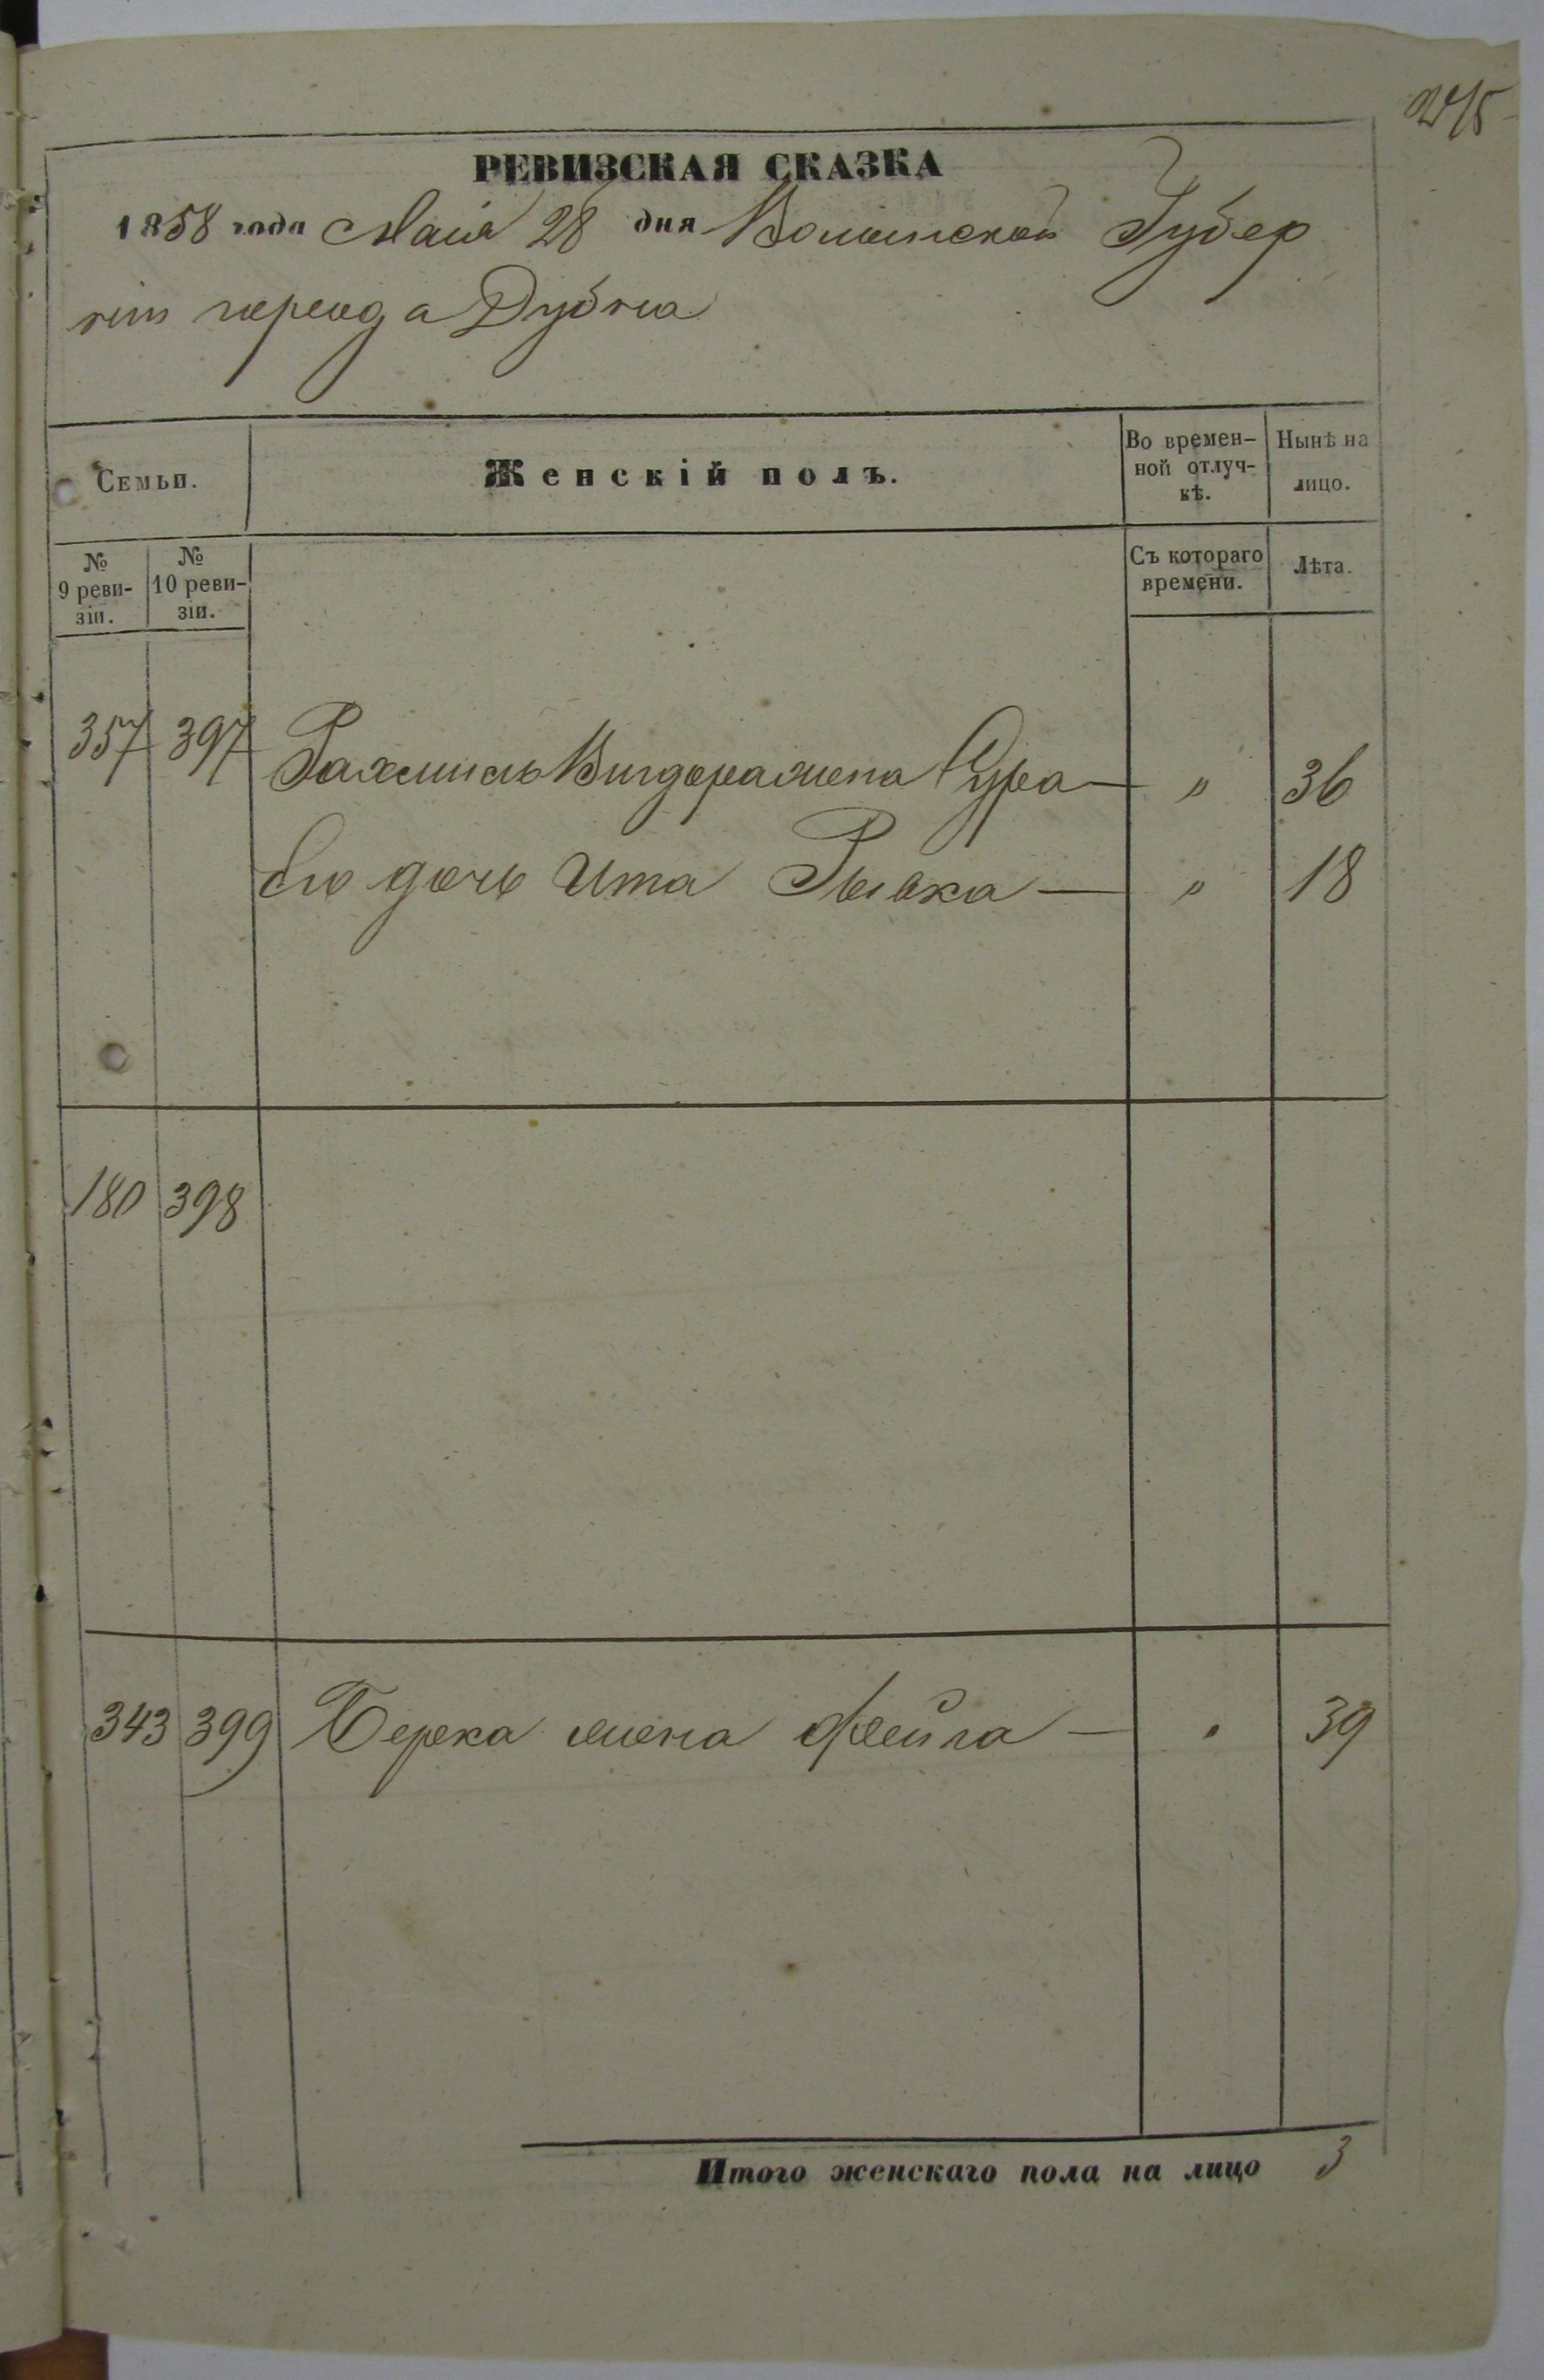 РЕВИЗСКАЯ СКАЗКА
1858 года Маія 28 дня Волынской Губер
ніи города Дубна
Семьи.
Женскій полъ.
Во времен-
ной отлуч-
кѣ.
Нынѣ на
лицо.
№
9 реви-
зіи.
№
10 реви-
зіи.
Съ котораго
времени.
Лѣта.
357 397 Рахмиель Вигдора жена Сура — " 36
Его дочь Ита Рывка — " 18
180 398
343 399 Берка жена Фейга — " 39
Итого женскаго пола на лицо 3